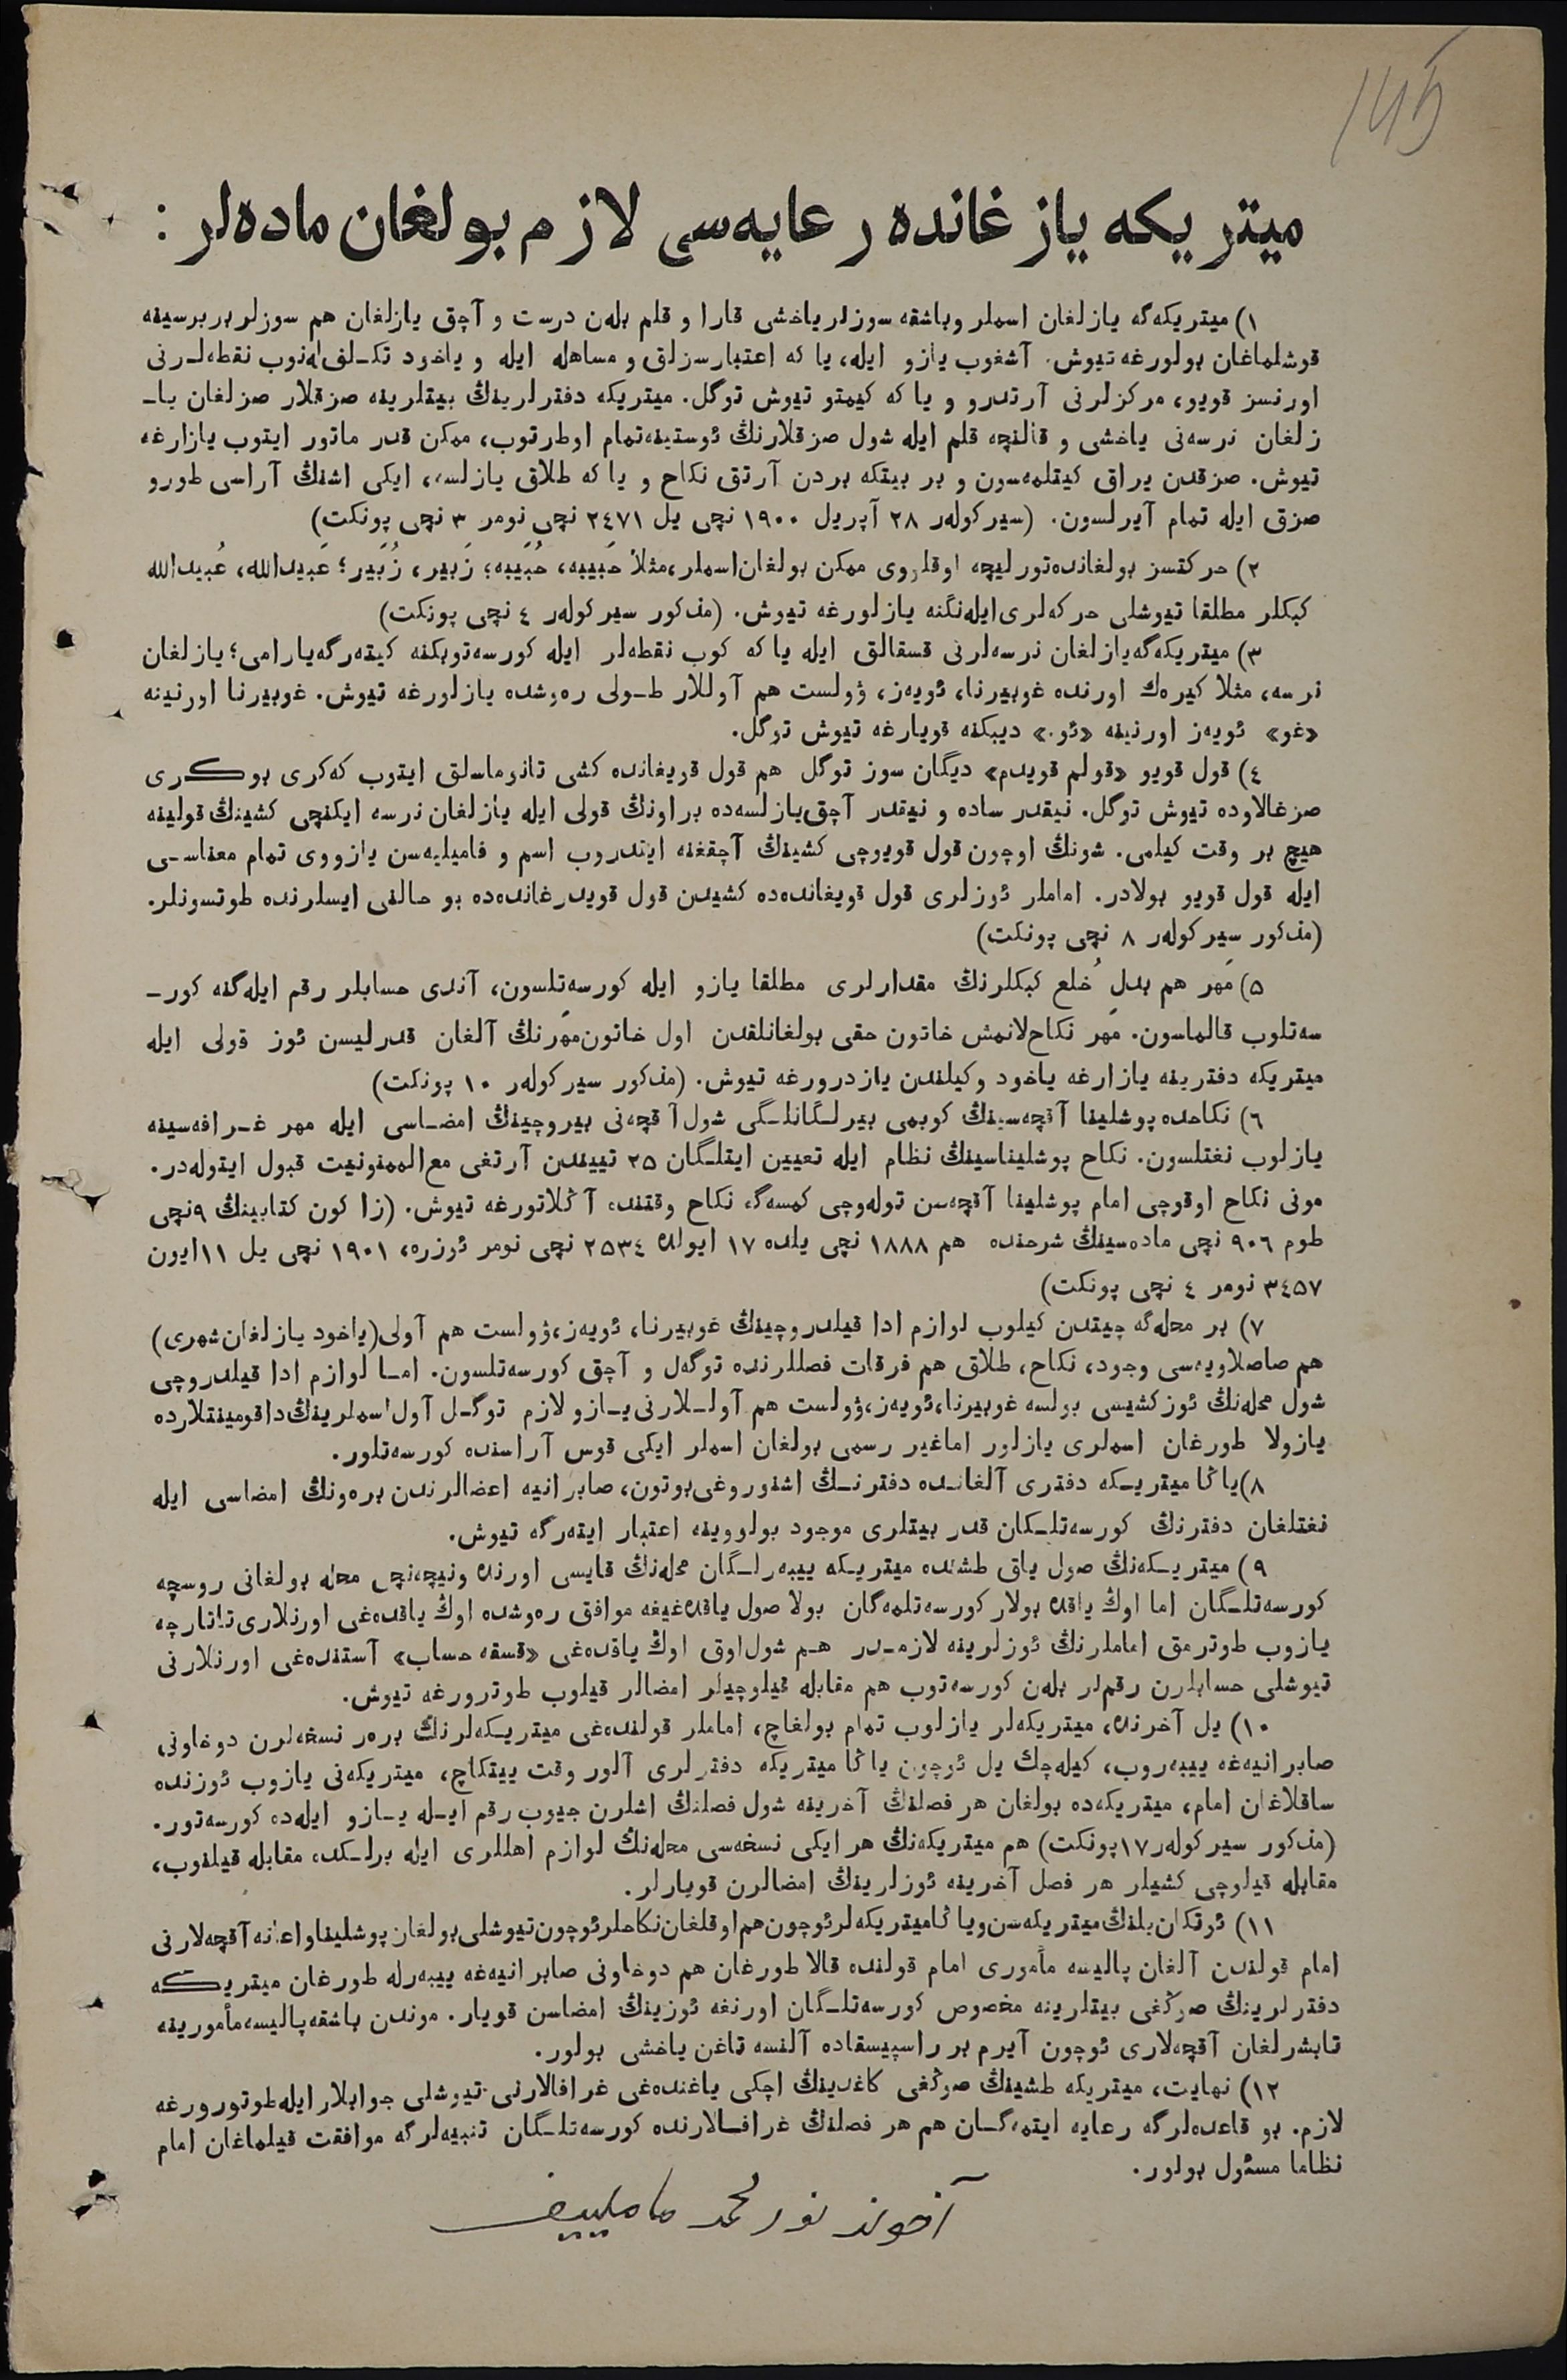 145
میتریکه یازغانده رعایه‌سی لازم بولغان ماده‌لر :
١) میتریکه‌گه یازلغان اسملر وباشقه سوزلر یاخشی قارا و قلم بلەن درست و آچق یازلغان هم سوزلر بربرسینه
قوشلماغان بولورغه تیوش. آشغوب یازو ایله، یا که اعتبارسزلق و مساهله ایله و یاخود تکـلف‌له‌نوب نقطه‌لـرنی
اورنسز قویو، مرکزلرنی آرتدرو و یا که کیمتو تیوش توگل. میتریکه دفترلرینڭ بیتلرینه صزقلار صزلغان یاـ
زلغان نرسه‌نی یاخشی و قالنچه قلم ایله شول صزقلارنڭ ئوستینه تمام اوطرتوب، ممکن قدر ماتور ایتوب یازارغه
تیوش. صزقدن یراق کیتلمه‌سون و بر بیتکه بردن آرتق نکاح و یا که طلاق یازلسه، ایکی اشنڭ آراسی طورو
صزق ایله تمام آیرلسون. (سیرکولەر ٢٨ آپریل ١٩٠٠ نچی یل ٢٤٧١ نچی نومر ٣ نچی پونکت)
٢) حرکتسز بولغانده تورلیچه اوقلووی ممکن بولغان اسملر، مثلا حَبیبه، حُبَیبه؛ زَبیر، زُبَیر؛ عَبیدالله، عُبیدالله
کبکلر مطلقا تیوشلی حرکه‌لری ایله‌نگنه یازلورغه تیوش. (مذکور سیرکولەر ٤ نچی پونکت)
٣) میتریکه‌گه یازلغان نرسه‌لرنی قسقالق ایله یا که کوب نقطه‌لر ایله کورسه‌توبکنه کیته‌رگه یارامی؛ یازلغان
نرسه، مثلا کیرەك اورنده غوبیرنا، ئویەز، ۋولست هم آوللار طـولی ره‌وشده یازلورغه تیوش. غوبیرنا اورنینه
«غو» ئویەز اورنینه «ئو.» دیبکنه قویارغه تیوش توگل.
٤) قول قویو «قولم قویدم» دیگان سوز توگل هم قول قویغانده کشی تانوماسلق ایتوب که‌کری بوکـری
صزغالاوده تیوش توگل. نیقدر ساده و نیقدر آچق یازلسه‌ده براونڭ قولی ایله یازلغان نرسه ایکنچی کشینڭ قولینه
هیچ بر وقت کیلمی. شونڭ اوچون قول قویوچی کشینڭ آچقغنه ایتدروب اسم و فامیلیه‌سن یازووی تمام معناسـی
ایله قول قویو بولادر. اماملر ئوزلری قول قویغانده‌ده کشیدن قول قویدرغانده‌ده بو حالنی ایسلرنده طوتسونلر.
(مذکور سیرکولەر ٨ نچی پونکت)
٥) مَهر هم بدل خُلع کبکلرنڭ مقدارلری مطلقا یازو ایله کورسه‌تلسون، آندی حسابلر رقم ایله‌گنه کورـ
سه‌تلوب قالماسون. مَهر نکاح‌لانمش خاتون حقی بولغانلقدن اول خاتون مَهرنڭ آلغان قدرلیسن ئوز قولی ایله
میتریکه دفترینه یازارغه یاخود وکیلندن یازدرورغه تیوش. (مذکور سیرکولەر ١٠ پونکت)
٦) نکاحده پوشلینا آقچه‌سینڭ کوبمی بیرلـگانلـگی شول آقچه‌نی بیروچینڭ امضـاسی ایله مهر غـرافه‌سینه
یازلوب نغتلسون. نکاح پوشلیناسینڭ نظام ایله تعیین ایتلـگان ٢٥ تییندن آرتغی مع‌الممنونیت قبول ایتوله‌در.
مونی نکاح اوقوچی امام پوشلینا آقچه‌سن توله‌وچی کمسه‌گه نکاح وقتنده آڭلاتورغه تیوش. (زاکون کتابینڭ ٩نچی
طوم ٩٠٦ نچی ماده‌سینڭ شرحنده هم ١٨٨٨ نچی یلده ١٧ ایولده ٢٥٣٤ نچی نومر ئوزره، ١٩٠١ نچی یل ١١ایون
٣٤٥٧ نومر ٤ نچی پونکت)
٧) بر محله‌گه چیتدن کیلوب لوازم ادا قیلدروچینڭ غوبیرنا، ئویەز، ۋولست هم آولی (یاخود یازلغان شهری)
هم صاصلاویه‌سی وجود، نکاح، طلاق هم فرقات فصللرنده توگه‌ل و آچق کورسه‌تلسون. امـا لوازم ادا قیلدروچی
شول محله‌نڭ ئوز کشیسی بولسه غوبیرنا، ئویەز، ۋولست هم آولـلارنی یـازو لازم توگـل آول اسملرینڭ داقومینتلارده
یازولا طورغان اسملری یازلور اماغیر رسمی بولغان اسملر ایکی قوس آراسنده کورسه‌تلور.
٨) یاڭا میتریـکه دفتری آلغانـده دفترنـڭ اشنوروغی بوتون، صابرانیه اعضالرندن بره‌ونڭ امضاسی ایله
نغتلغان دفترنڭ کورسه‌تلـکان قدر بیتلری موجود بولووینه اعتبار ایته‌رگه تیوش.
٩) میتریـکه‌نڭ صول یاق طشنده میتریـکه ییبه‌رلـگان محله‌نڭ قایسی اورنده ونیچه‌نچی محله بولغانی روسچه
کورسه‌تلـگان اما اوڭ یاقده بولار کورسه‌تلمه‌گان بولا صول یاقده‌غیغه موافق ره‌وشده اوڭ یاقده‌غی اورنلاری تاتارچه
یازوب طوترمق اماملرنڭ ئوزلرینه لازمـدر هـم شول اوق اوڭ یاقده‌غی «قسقه حساب» آستنده‌غی اورنلارنی
تیوشلی حسابلرن رقم‌لر بلەن کورسه‌توب هم مقابله قیلوچیلر امضالر قیلوب طوترورغه تیوش.
١٠) یل آخرنده، میتریکه‌لر یازلوب تمام بولغاچ، اماملر قولنده‌غی میتریـکه‌لرنڭ برەر نسخه‌لرن دوخاونی
صابرانیه‌غه ییبه‌روب، کیله‌چك یل ئوچون یاڭا میتریکه دفترلری آلور وقت ییتکاچ، میتریکه‌نی یازوب ئوزنده
ساقلاغان امام، میتریکه‌ده بولغان هر فصلنڭ آخرینه شول فصلنڭ اشلرن جیوب رقم ایـله یـازو ایله‌ده کورسه‌تور.
(مذکور سیرکولەر ١٧پونکت) هم میتریکه‌نڭ هر ایکی نسخه‌سی محله‌نڭ لوازم اهللری ایله برلـکده مقابله قیلنوب،
مقابله قیلوچی کشیلر هر فصل آخرینه ئوزلرینڭ امضالرن قویارلر.
١١) ئوتکان یلنڭ میتریکه‌سن ویاڭا میتریکه‌لر ئوچون هم اوقلغان نکاحلر ئوچون تیوشلی بولغان پوشلینا و اعانه آقچه‌لارنی
امام قولندن آلغان پالیسه مأموری امام قولنده قالا طورغان هم دوخاونی صابرانیه‌غه ییبه‌رله طورغان میتریـکه
دفترلرینڭ صوڭغی بیتلرینه مخصوص کورسه‌تلـگان اورنغه ئوزینڭ امضاسن قویار. موندن باشقه پالیسه مأمورینه
تابشرلغان آقچه‌لاری ئوچون آیرم بر راسپیسقاده آلنسه تاغن یاخشی بولور.
١٢) نهایت، میتریکه طشینڭ صوڭغی کاغدینڭ اچکی یاغنده‌غی غرافالارنی تیوشلی جوابلار ایله طوتورورغه
لازم. بو قاعده‌لرگه رعایه ایتمه‌گـان هم هر فصلنڭ غرافـالارنده کورسه‌تلـگان تنبیه‌لرگه موافقت قیلماغان امام
نظاما مسئول بولور.
آخوند نورمحمد مامليیف